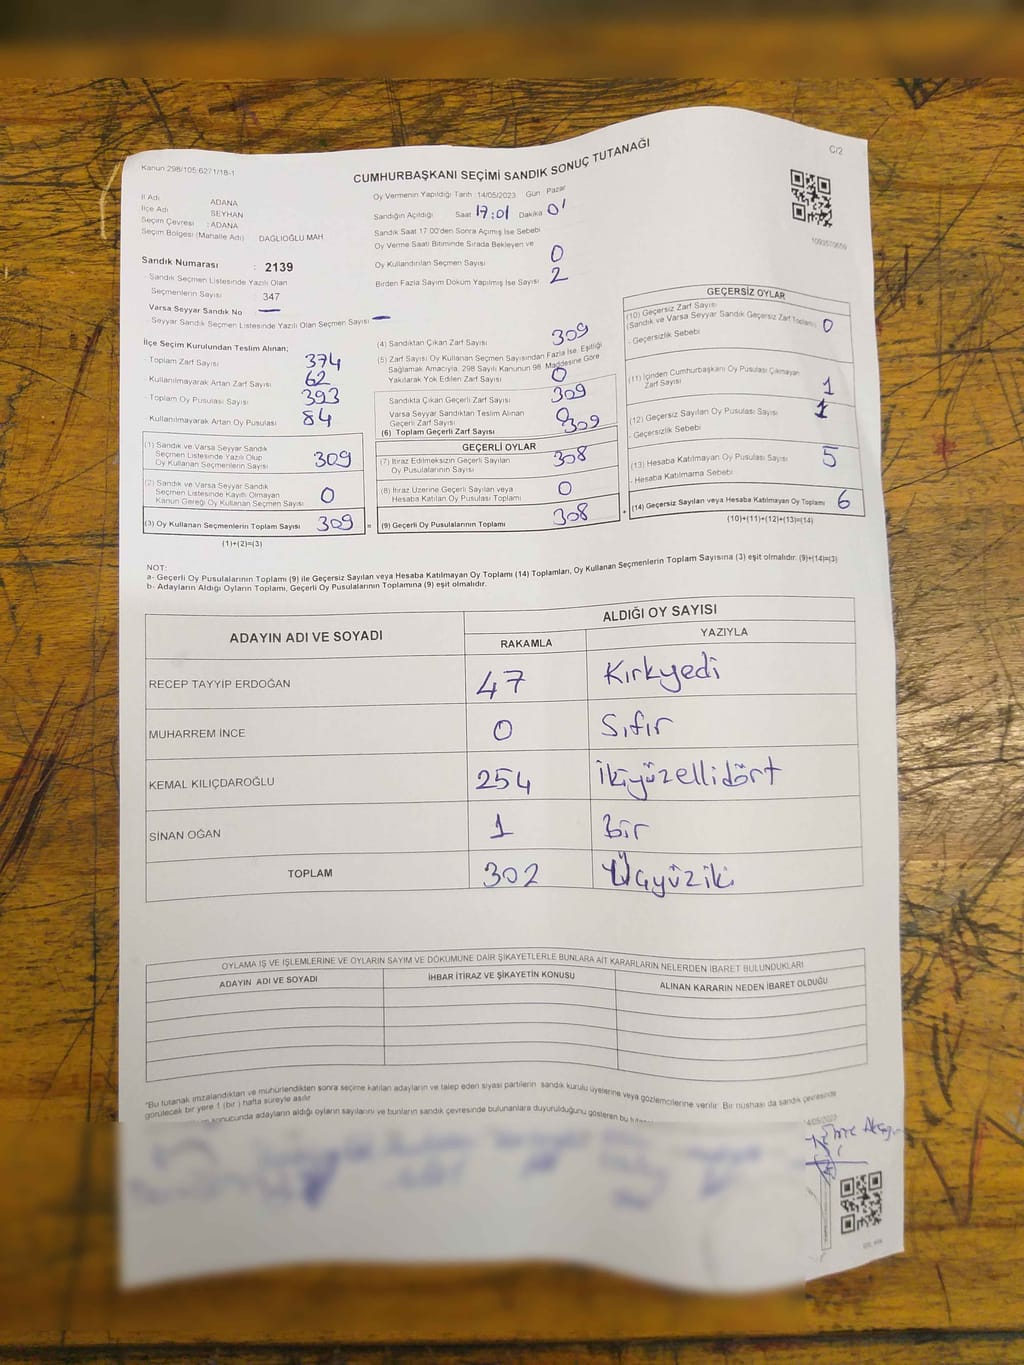 Kanun:298/105 6271/18-1
C/2
CUMHURBAŞKANI SEÇİMİ SANDIK SONUÇ TUTANAĞI
İl Adı ADANA
İlçe Adı SEYHAN
Seçim Çevresi : ADANA
Seçim Bölgesi (Mahalle Adı) DAĞLIOĞLU MAH
Sandık Numarası : 2139
- Sandık Seçmen Listesinde Yazılı Olan
Seçmenlerin Sayısı : 347
Varsa Seyyar Sandık No —
- Seyyar Sandık Seçmen Listesinde Yazılı Olan Seçmen Sayısı —
Oy Vermenin Yapıldığı Tarih :14/05/2023 Gün : Pazar
Sandığın Açıldığı Saat 17:01 Dakika 01
Sandık Saat 17:00'den Sonra Açımış İse Sebebi
Oy Verme Saati Bitiminde Sırada Bekleyen ve
Oy Kullandırılan Seçmen Sayısı 0
Birden Fazla Sayım Döküm Yapılmış İse Sayısı 2
İlçe Seçim Kurulundan Teslim Alınan;
- Toplam Zarf Sayısı 374
- Kullanılmayarak Artan Zarf Sayısı 62
- Toplam Oy Pusulası Sayısı 393
- Kullanılmayarak Artan Oy Pusulası 84
(1) Sandık ve Varsa Seyyar Sandık
Seçmen Listesinde Yazılı Olup
Oy Kullanan Seçmenlerin Sayısı 309
(2) Sandık ve Varsa Seyyar Sandık
Seçmen Listesinde Kayıtlı Olmayan
Kanun Gereği Oy Kullanan Seçmen Sayısı 0
(3) Oy Kullanan Seçmenlerin Toplam Sayısı 309
(1)+(2)=(3)
(4) Sandıktan Çıkan Zarf Sayısı 309
(5) Zarf Sayısı Oy Kullanan Seçmen Sayısından Fazla İse, Eşitliği
Sağlamak Amacıyla, 298 Sayılı Kanunun 98. Maddesine Göre
Yakılarak Yok Edilen Zarf Sayısı 0
Sandıkta Çıkan Geçerli Zarf Sayısı 309
Varsa Seyyar Sandıktan Teslim Alınan
Geçerli Zarf Sayısı 0
(6) Toplam Geçerli Zarf Sayısı 309
GEÇERLİ OYLAR
(7) İtiraz Edilmeksizin Geçerli Sayılan
Oy Pusulalarının Sayısı 308
(8) İtiraz Üzerine Geçerli Sayılan veya
Hesaba Katılan Oy Pusulası Toplamı 0
= (9) Geçerli Oy Pusulalarının Toplamı 308 +
GEÇERSİZ OYLAR
(10) Geçersiz Zarf Sayısı
(Sandık ve Varsa Seyyar Sandık Geçersiz Zarf Toplamı) 0
- Geçersizlik Sebebi
(11) İçinden Cumhurbaşkanı Oy Pusulası Çıkmayan
Zarf Sayısı 1
(12) Geçersiz Sayılan Oy Pusulası Sayısı 1
- Geçersizlik Sebebi
(13) Hesaba Katılmayan Oy Pusulası Sayısı 5
- Hesaba Katılmama Sebebi
(14) Geçersiz Sayılan veya Hesaba Katılmayan Oy Toplamı 6
(10)+(11)+(12)+(13)=(14)
NOT:
a- Geçerli Oy Pusulalarının Toplamı (9) ile Geçersiz Sayılan veya Hesaba Katılmayan Oy Toplamı (14) Toplamları, Oy Kullanan Seçmenlerin Toplam Sayısına (3) eşit olmalıdır. (9)+(14)=(3)
b- Adayların Aldığı Oyların Toplamı, Geçerli Oy Pusulalarının Toplamına (9) eşit olmalıdır.
ADAYIN ADI VE SOYADI ALDIĞI OY SAYISI
RAKAMLA YAZIYLA
RECEP TAYYİP ERDOĞAN 47 Kırkyedi
MUHARREM İNCE 0 Sıfır
KEMAL KILIÇDAROĞLU 254 İkiyüzellidört
SİNAN OĞAN 1 Bir
TOPLAM 302 Üçyüziki
OYLAMA İŞ VE İŞLEMLERİNE VE OYLARIN SAYIM VE DÖKÜMÜNE DAİR ŞİKAYETLERLE BUNLARA AİT KARARLARIN NELERDEN İBARET BULUNDUKLARI
ADAYIN ADI VE SOYADI İHBAR İTİRAZ VE ŞİKAYETİN KONUSU ALINAN KARARIN NEDEN İBARET OLDUĞU
*Bu tutanak imzalandıktan ve mühürlendikten sonra seçime katılan adayların ve talep eden siyasi partilerin sandık kurulu üyelerine veya gözlemcilerine verilir. Bir nüshası da sandık çevresinde
görülecek bir yere 1 (bir) hafta süreyle asılır
sonucunda adayların aldığı oyların sayılarını ve bunların sandık çevresinde bulunanlara duyurulduğunu gösteren bu
14/05/2023